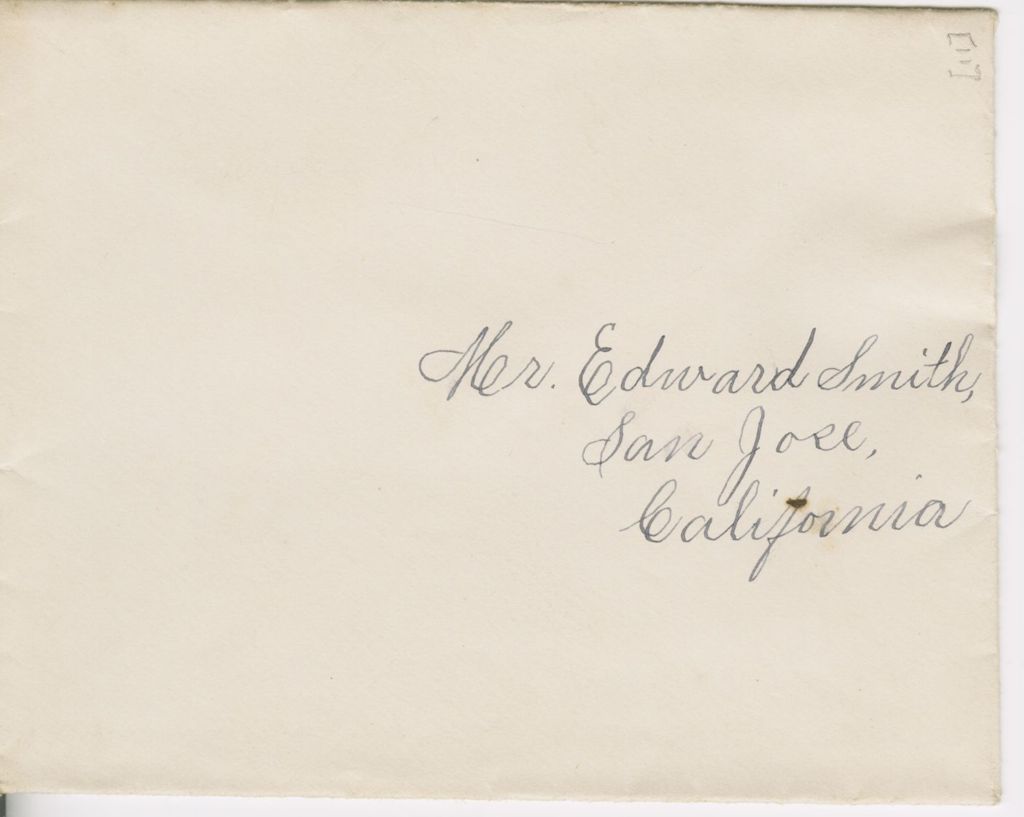 Mr. Edward Smith,
San Jose,
California